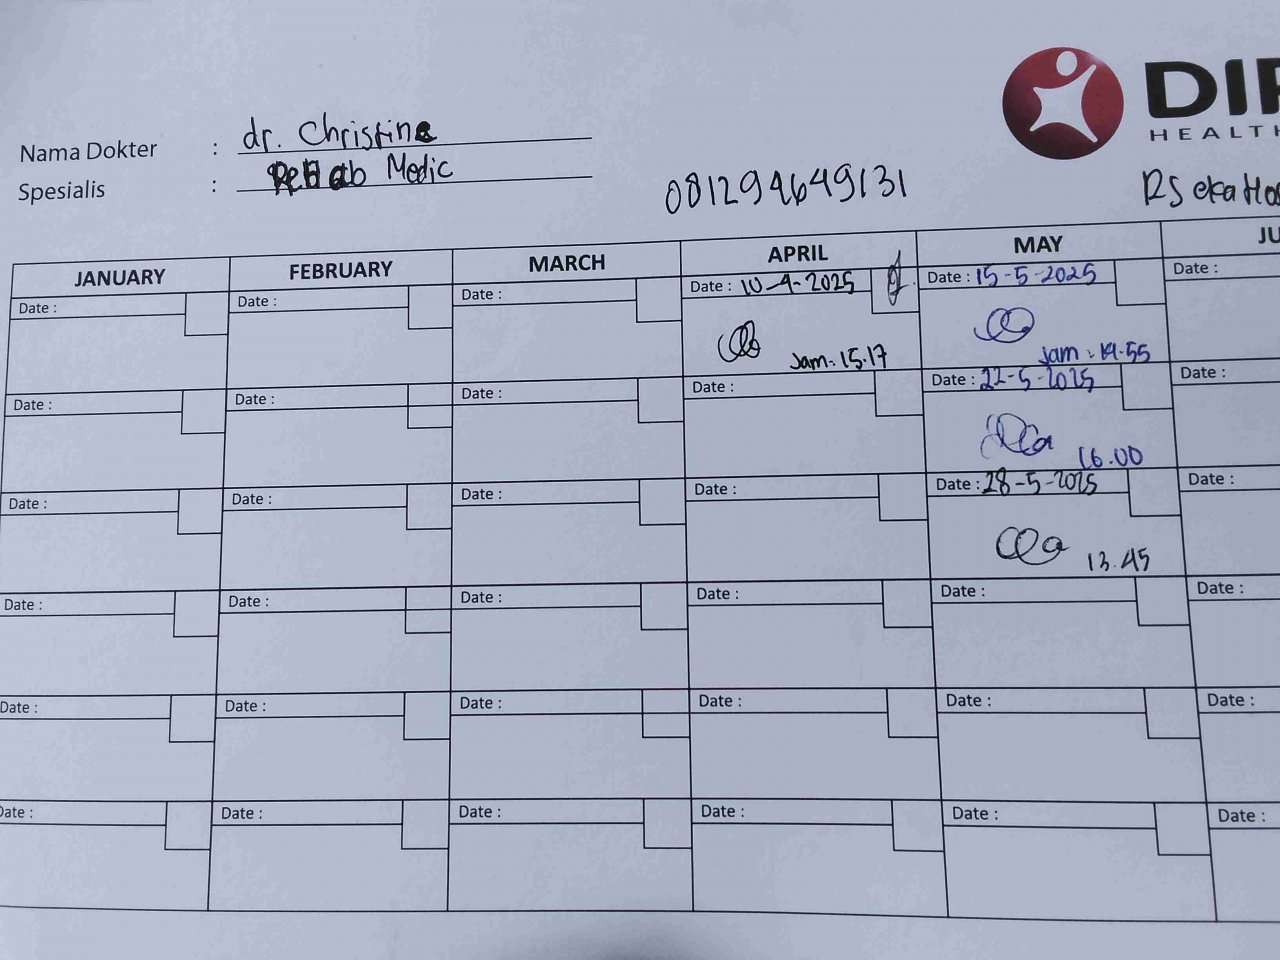 DIP
HEALTH
Nama Dokter : dr. Christine
Spesialis : Rehab Medic
081294649131
RS eka Hos
JANUARY FEBRUARY MARCH APRIL MAY JU
Date : Date : Date : Date : 10-4-2025 Date : 15-5-2025 Date :
Jam: 15.17 Jam : 14.55
Date : Date : Date : Date : Date : 22-5-2025 Date :
16.00
Date : Date : Date : Date : Date : 28-5-2025 Date :
13.45
Date : Date : Date : Date : Date : Date :
Date : Date : Date : Date : Date : Date :
Date : Date : Date : Date : Date : Date :